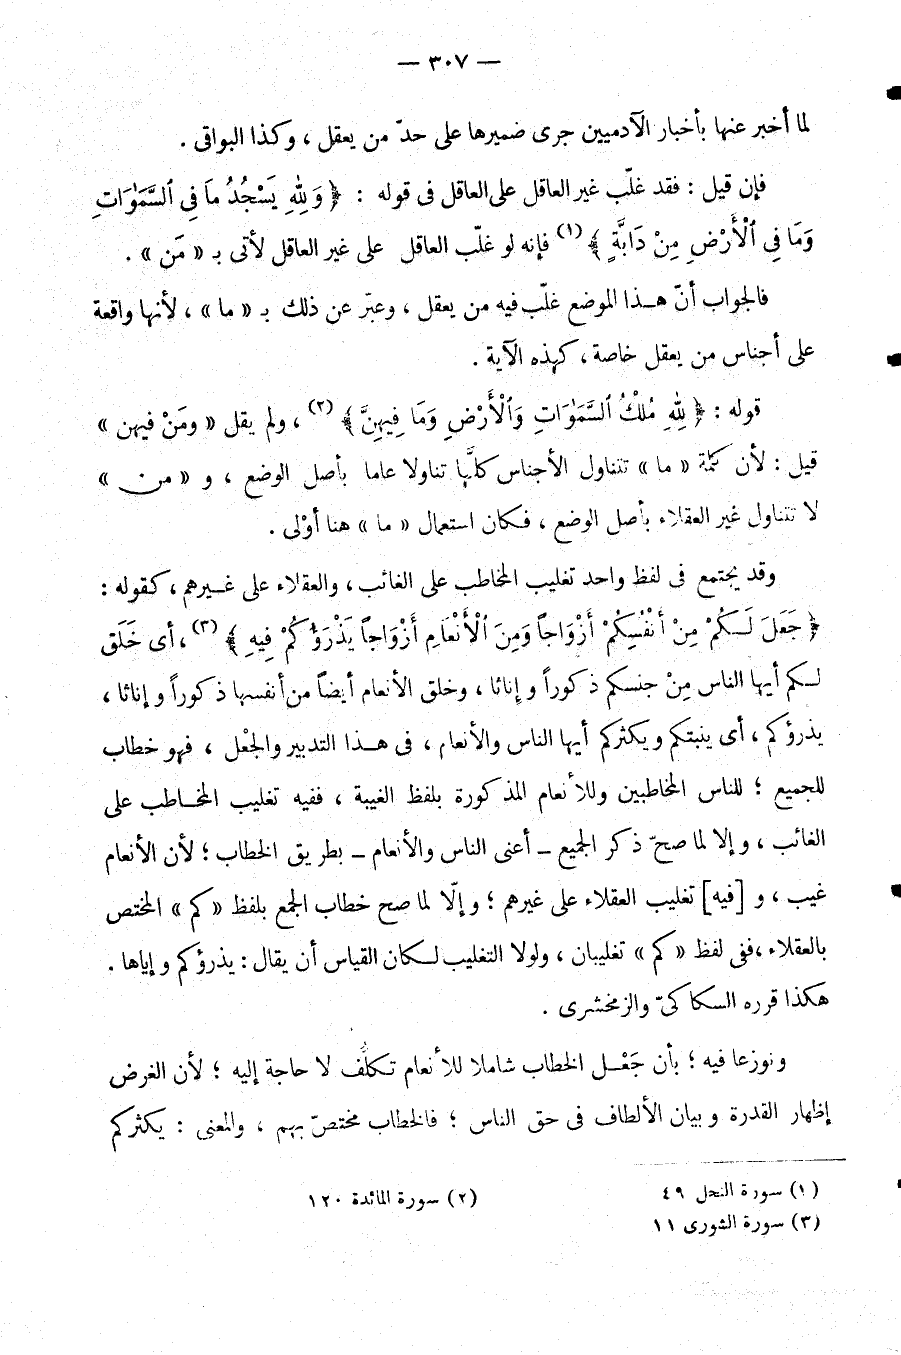 — ٣٠٧ —
لما أخبر عنها بأخبار الآدميين جرى ضميرها على حدّ من يعقل ، وكذا البواقى .
فإن قيل : فقد غلّب غير العاقل على العاقل فى قوله : ﴿ وَلِلهِ يَسْجُدُ مَا فِى ٱلسَّمَٰوَاتِ
وَمَا فِى ٱلْأَرْضِ مِنْ دَابَّةٍ ﴾(١) فإنه لو غلّب العاقل على غير العاقل لأتى بـ « مَن » .
فالجواب أنّ هـذا الموضع غلّب فيه من يعقل ، وعبّر عن ذلك بـ « ما » ، لأنها واقعة
على أجناس من يعقل خاصة ، كهذه الآية .
قوله : ﴿ لِلهِ مُلْكُ ٱلسَّمَٰوَاتِ وَٱلْأَرْضِ وَمَا فِيهِنَّ ﴾(٢) ، ولم يقل « ومَنْ فيهن »
قيل : لأن كلمة « ما » تتناول الأجناس كلَّها تناولا عاما بأصل الوضع ، و « من »
لا تتناول غير العقلاء بأصل الوضع ، فكان استعمال « ما » هنا أوْلى .
وقد يجتمع فى لفظ واحد تغليب المخاطب على الغائب ، والعقلاء على غـيرهم ، كقوله :
﴿ جَعَلَ لَـكُمْ مِنْ أَنْفُسِكُمْ أَزْوَاجاً وَمِنَ ٱلْأَنْعَامِ أَزْوَاجاً يَذْرَؤُكُمْ فِيهِ ﴾(٣) ، أى خَلَق
لـكم أيها الناس مِنْ جنسكم ذكوراً وإناثا ، وخلق الأنعام أيضاً من أنفسها ذكوراً وإناثا ،
يذرؤكم ، أى ينبتكم ويكثركم أيها الناس والأنعام ، فى هـذا التدبير والجَعْل ، فهو خطاب
للجميع ؛ للناس المخاطبين وللأنعام المذكورة بلفظ الغيبة ، ففيه تغليب المخـاطب على
الغائب ، وإلا لما صحّ ذكر الجميع ـ أعنى الناس والأنعام ـ بطريق الخطاب ؛ لأن الأنعام
غيب ، و [فيه] تغليب العقلاء على غيرهم ؛ وإلّا لما صح خطاب الجمع بلفظ « كم » المختص
بالعقلاء ، ففى لفظ « كم » تغليبان ، ولولا التغليب لـكان القياس أن يقال : يذرؤكم وإياها .
هكذا قرره السكاكىّ والزمخشرى .
ونوزعا فيه ؛ بأن جَعْـل الخطاب شاملا للأنعام تكلُّف لا حاجة إليه ؛ لأن الغرض
إظهار القدرة وبيان الألطاف فى حق الناس ؛ فالخطاب مختصّ بهم ، والمعنى : يكثركم
(١) سورة النحل ٤٩
(٢) سورة المائدة ١٢٠
(٣) سورة الشورى ١١